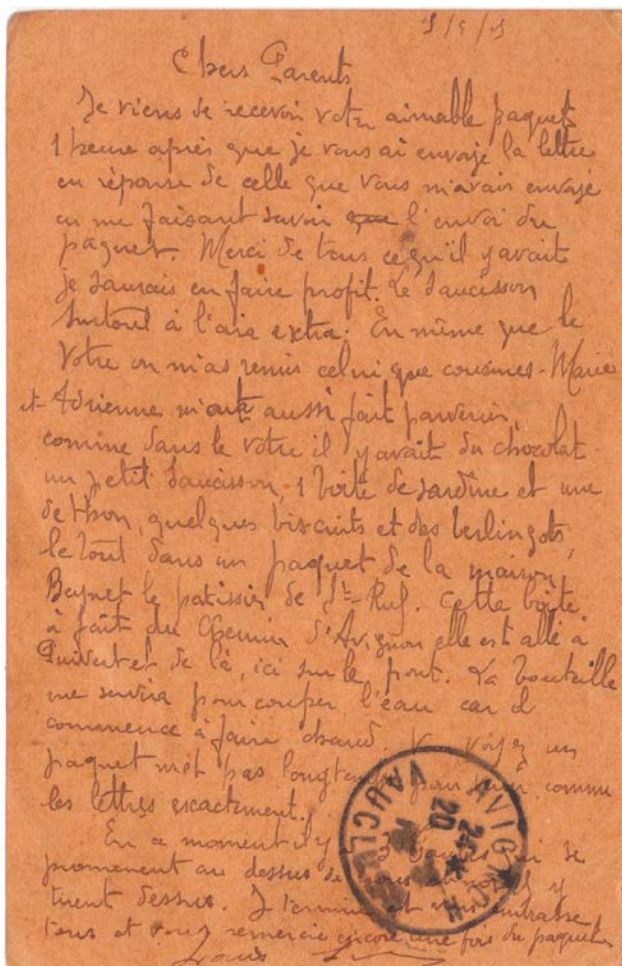 Chers Parents
Je viens de recevoir votre aimable paquet
1 heure après que je vous ai envoyé la lettre
en réponse de celle que vous m'avais envoyé
en me faisant savoir l'envoi du
paquet. Merci de tous ce qu'il y avait
je saurais en faire profit. Le saucisson
surtout à l'air extra. En même que le
Votre on m'as remis celui que cousines-Marie
et Adrienne m'ont aussi fait parvenir,
comme dans le votre il y avait du chocolat
un petit saucisson, 1 boite de sardine et une
de thon, quelques biscuits et des berlingots,
le tout dans un paquet de la maison
Beynet le patissier de St-Ruf. cette boite
à fait du chemin d'Avignon elle est allé à
et de là, ici sur le front. La bouteille
me servira pour couper l'eau car il
commence à faire chaud. V. voyez un
paquet met pas longtemps pour venir comme
les lettres exactement.
En ce moment il y a 3 qui se
promenent au dessus de nous y
tirent dessus. Je termine et vous embrasse
tous et vous remercie encore une fois du paquet
Louis
AVIGNON
24
20
VAUCLUSE